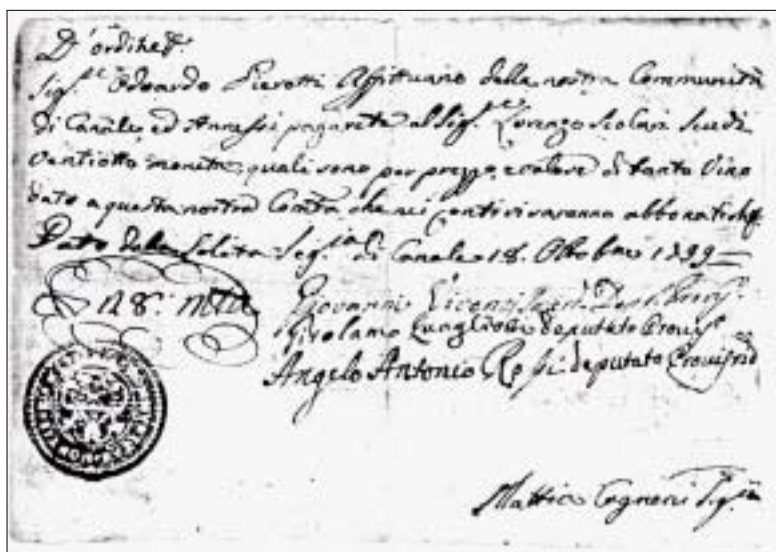 D'ordine &c.
Sig.re Odoardo Pierotti Affittuario della nostra Communità
di Canale, ed Annessi pagarete al Sig.re Lorenzo Scolari Scudi
Ventiotto moneta, quali sono per prezzo, e valore di tanto Vino
dato a questa nostra Com.tà, che nei conti vi saranno abbonati &c.
Dato dalla Solita Seg.ria di Canale 18. Ottobre 1799
28: m.ta Giovanni Deput.
Girolamo deputato Provis.
Angelo Antonio Rossi deputato Provis.
Mattia Cagneni Seg.